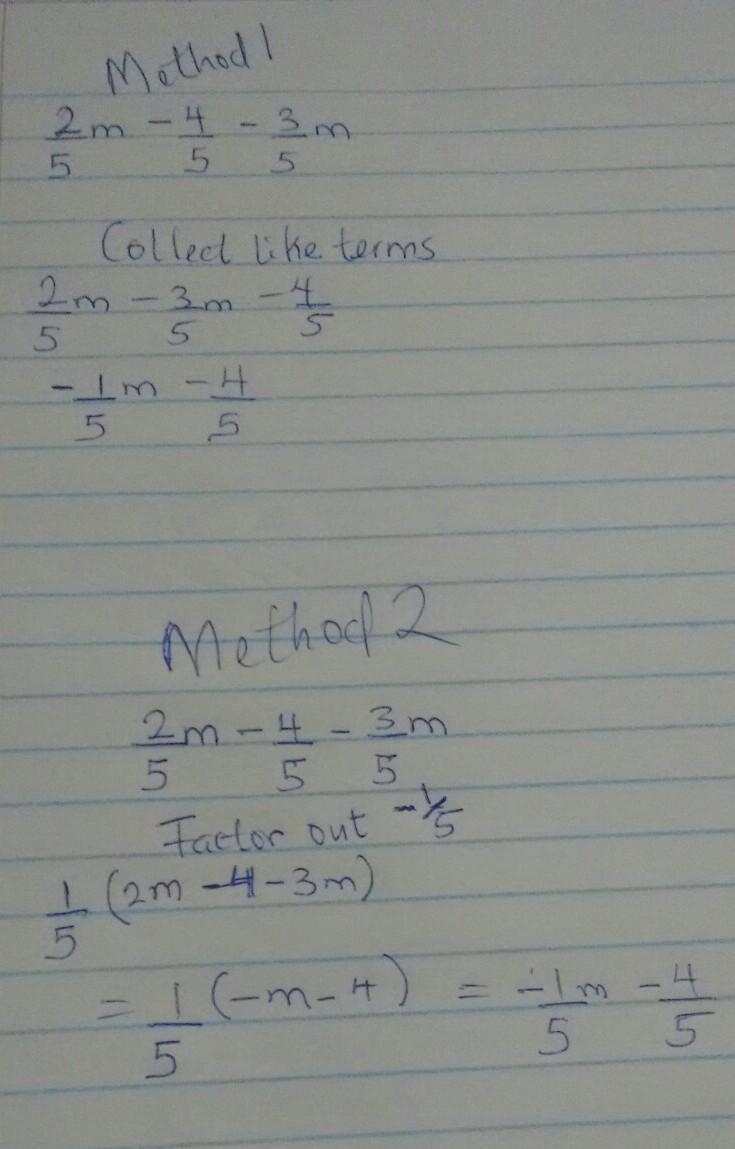 Method 1
2/5 m - 4/5 - 3/5 m
Collect like terms
2/5 m - 3/5 m - 4/5
-1/5 m - 4/5
Method 2
2/5 m - 4/5 - 3/5 m
Factor out -1/5
1/5 (2m - 4 - 3m)
= 1/5 (-m - 4) = -1/5 m - 4/5